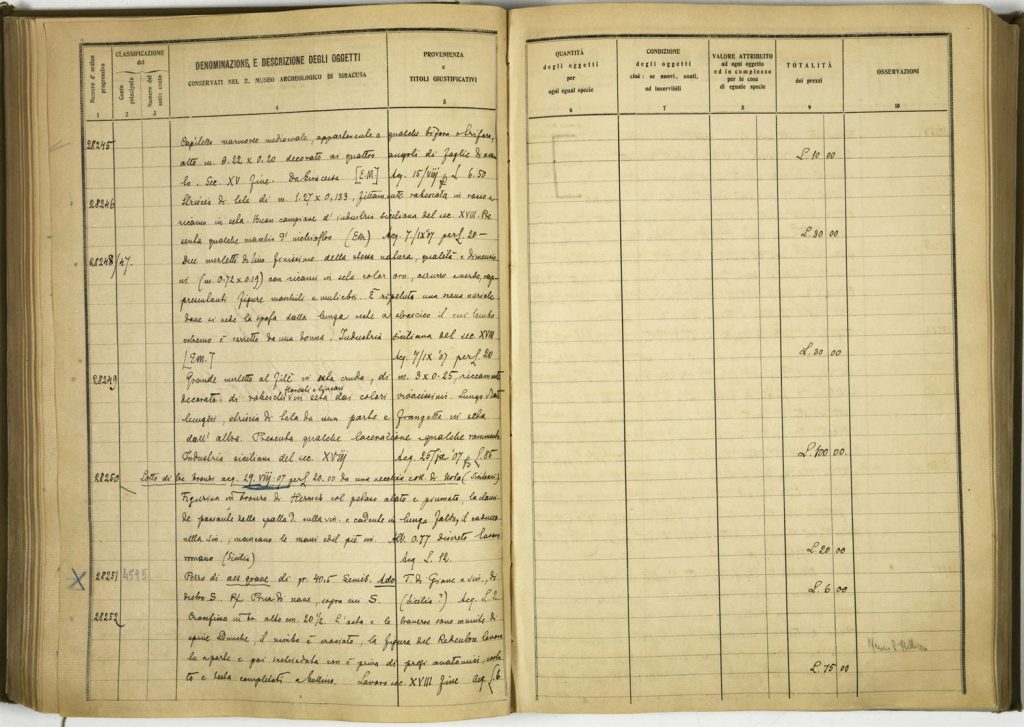 Numero d'ordine progressivo
CLASSIFICAZIONE del
Conto principale
Numero del sotto conto
DENOMINAZIONE, E DESCRIZIONE DEGLI OGGETTI
CONSERVATI NEL R. MUSEO ARCHEOLOGICO DI SIRACUSA
PROVENIENZA
e
TITOLI GIUSTIFICATIVI
1 2 3 4 5
28245 Capitello marmoreo medioevale, appartenente a qualche bifora o trifora,
alto m. 0.22 x 0.20 decorato ai quattro angoli di foglie di
Sec. XV fine. Da Siracusa [E.M.] Acq. 15/VIII L. 6.50
28246 Striscia di tela di m. 1.27 x 0,133, fittamente rabescata in rosso a
ricamo in seta. Buon campione d'industria siciliana del sec. XVIII. Pre
senta qualche macchia d' inchiostro (E.M.) Acq. 7/IX '07 per L. 20 -
28248/47. Due merletti di lino finissimo della stessa natura, qualità e dimensio
ni (m. 0.72 x 0.19) con ricami in seta color oro, azzurro e verde, rap
presentanti figure maschili e muliebri. È ripetuta una scena nuziale
dove si vede la sposa dalla lunga veste a strascico il cui lembo
estremo è sorretto da una donna. Industria siciliana del sec XVIII
[E.M.] Acq. 7/IX '07 per L. 20
28249 Grande merletto al filè in seta cruda, di m. 3 x 0.25, riccamente
decorato di rabeschi floreali e lineari in seta dai colori vivacissimi. Lungo i lati
lunghi, striscia di tela da una parte e frangetta in seta
dall' altra. Presenta qualche lacerazione e qualche rammendo
Industria siciliana del sec. XVIII Acq. 25/IX '07 L. 85
28250 Lotto di tre bronzi acq. 29. VIII. 07 per L. 20.00 da una coll. di Noto
Figurina in bronzo di Hermes col petaso alato e piumato, la clami
de passante dalla spalla d. sulla sin. e cadente in lunga falda, il caduceo
nella sin., mancano le mani e del piè sin. Alt. 0.77 discreto lavoro
romano (Sicilia) Acq L. 12.
X 28251 4595 Pezzo di aes grave di gr. 40.5 Semib. Ado. T. di Giove a sin., di
dietro S. R/ Prora di nave, sopra cui S. (Sicilia?) Acq. L. 2
28252 Crocefisso in alto cm. 20 1/2. L'asta e le traverse sono munite di
spine, il nimbo è crociato, la figura del Redentore lavora
ta a parte e poi inchiodata con è priva di pregi anatomici,
to e testa completati a bulino. Lavoro sec. XVIII fine Acq L. 6
QUANTITÀ
degli oggetti
per
ogni egual specie
CONDIZIONE
degli oggetti
cioè: se nuovi, usati,
od inservibili
VALORE ATTRIBUITO
ad ogni oggetto
ed in complesso
per le cose
di eguale specie
TOTALITÀ
dei prezzi
OSSERVAZIONI
6 7 8 9 10
L. 10 00
L. 30 00
L. 30 00
L. 100 00
L. 20 00
L. 6 00
L. 75 00